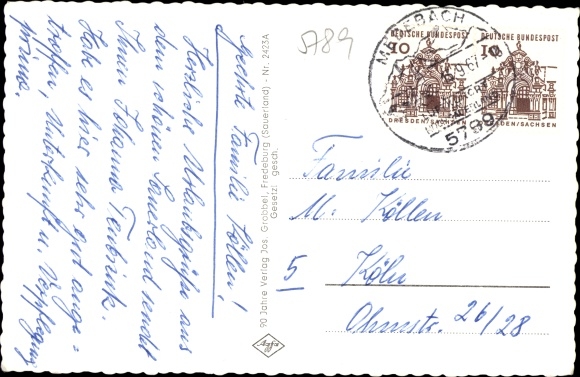 Geehrte Familie Köllen!
Herzliche Urlaubsgrüße aus
dem schönen Sauerland sendet
Ihnen Johanna
Habe es hier sehr gut ange=
troffen, Unterkunft u. Verpflegung
prima.
90 Jahre Verlag Jos. Grobbel, Fredeburg (Sauerland) - Nr. 2423A
Gesetzl. gesch.
Agfa
5789
DEUTSCHE BUNDESPOST
10
DRESDEN/SACHSEN
DEUTSCHE BUNDESPOST
10
DRESDEN/SACHSEN
5789
Familie
M. Köllen
5 Köln
Ohmstr. 26/28